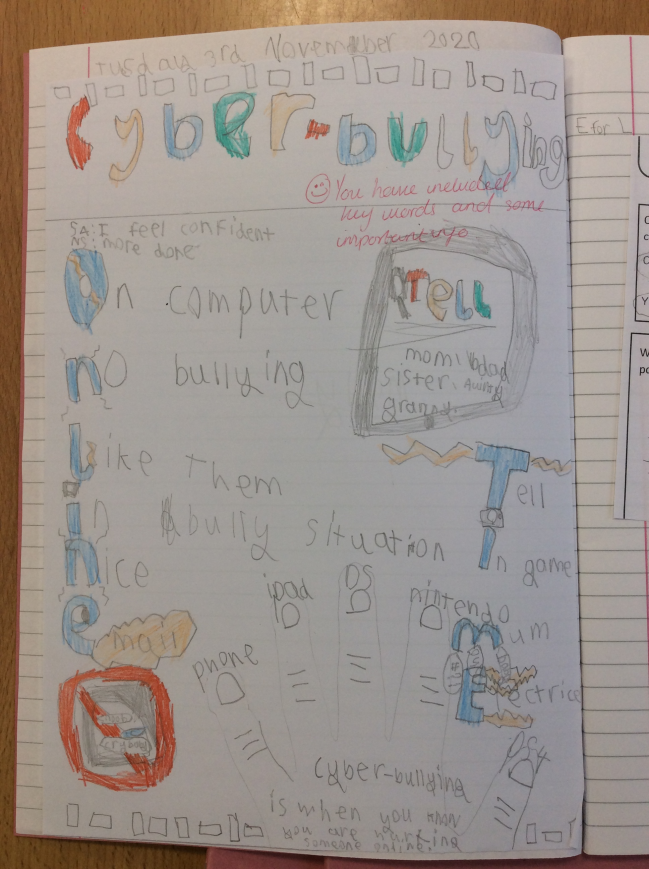 Tuesday 3rd November 2020
Cyber-bullying
E for L
You have included
key words and some
important info
SA: I feel confident
NS: more done
On computer
no bullying
Like Them
in bully situation
nice
email
Tell
mom dad
sister.
granny.
Tell
In game
Mum
Electrice
phone
ipad
DS
nintendo
PS4
Cyber-bullying
is when you know
you are hurting
someone online.